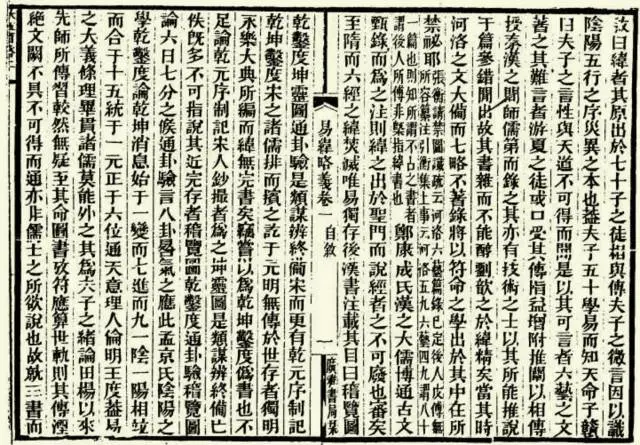 曰緯者其原出於七十子之徒相與傳夫子之微言因以識
陰陽五行之序災異之本也蓋夫子五十學易而知天命子贛
曰夫子之言性與天道不可得而聞是以其可言者六藝之文
著之其難言者游夏之徒或口受其傳指益增附推闡以相傳
授秦漢之間師儒第而錄之其亦有技術之士以其所能推說
于篇參錯閒出故其書雜而不能醇劉歆之於緯精矣當其時
河洛之文大備而七略不著錄將以符命之學出於其中在所
禁祕耶
張衡請禁圖讖疏云河洛六藝篇錄已定後人皮傅無
所容纂注引衡集上事云河洛五九六藝四九謂八十
一篇也則知所謂不占之書者
謂後人所傳非緊指緯書也
鄭康成氏漢之大儒博通古文
甄錄而為之注則緯之出於聖門而說經者之不可廢也審矣
至隋而六經之緯焚滅唯易獨存後漢書注載其目曰稽覽圖
易緯略義卷一 自敘 一 廣雅書局栞
乾鑿度坤靈圖通卦驗是類謀辨終備宋而更有乾元序制記
乾坤鑿度宋之諸儒排而擯之訖于元明無傳於世存者獨明
永樂大典所編而緯無完書矣竊嘗以為乾坤鑿度偽書也不
足論乾元序制記宋人鈔撮者為之坤靈圖是類謀辨終備亡
佚既多不可指說其近完存者稽覽圖乾鑿度通卦驗稽覽圖
論六日七分之候通卦驗言八卦晷氣之應此孟京氏陰陽之
學乾鑿度論乾坤消息始于一變而七進而九一陰一陽相竝
而合于十五統于一元正于六位通天意理人倫明王度蓋易
之大義條理畢貫諸儒莫能外之其為夫子之緒論田楊以來
先師所傳習較然無疑至其命圖書攷符應算世軌則其傳湮
絕文闕不具不可得而通亦非儒士之所欲說也故就三書而